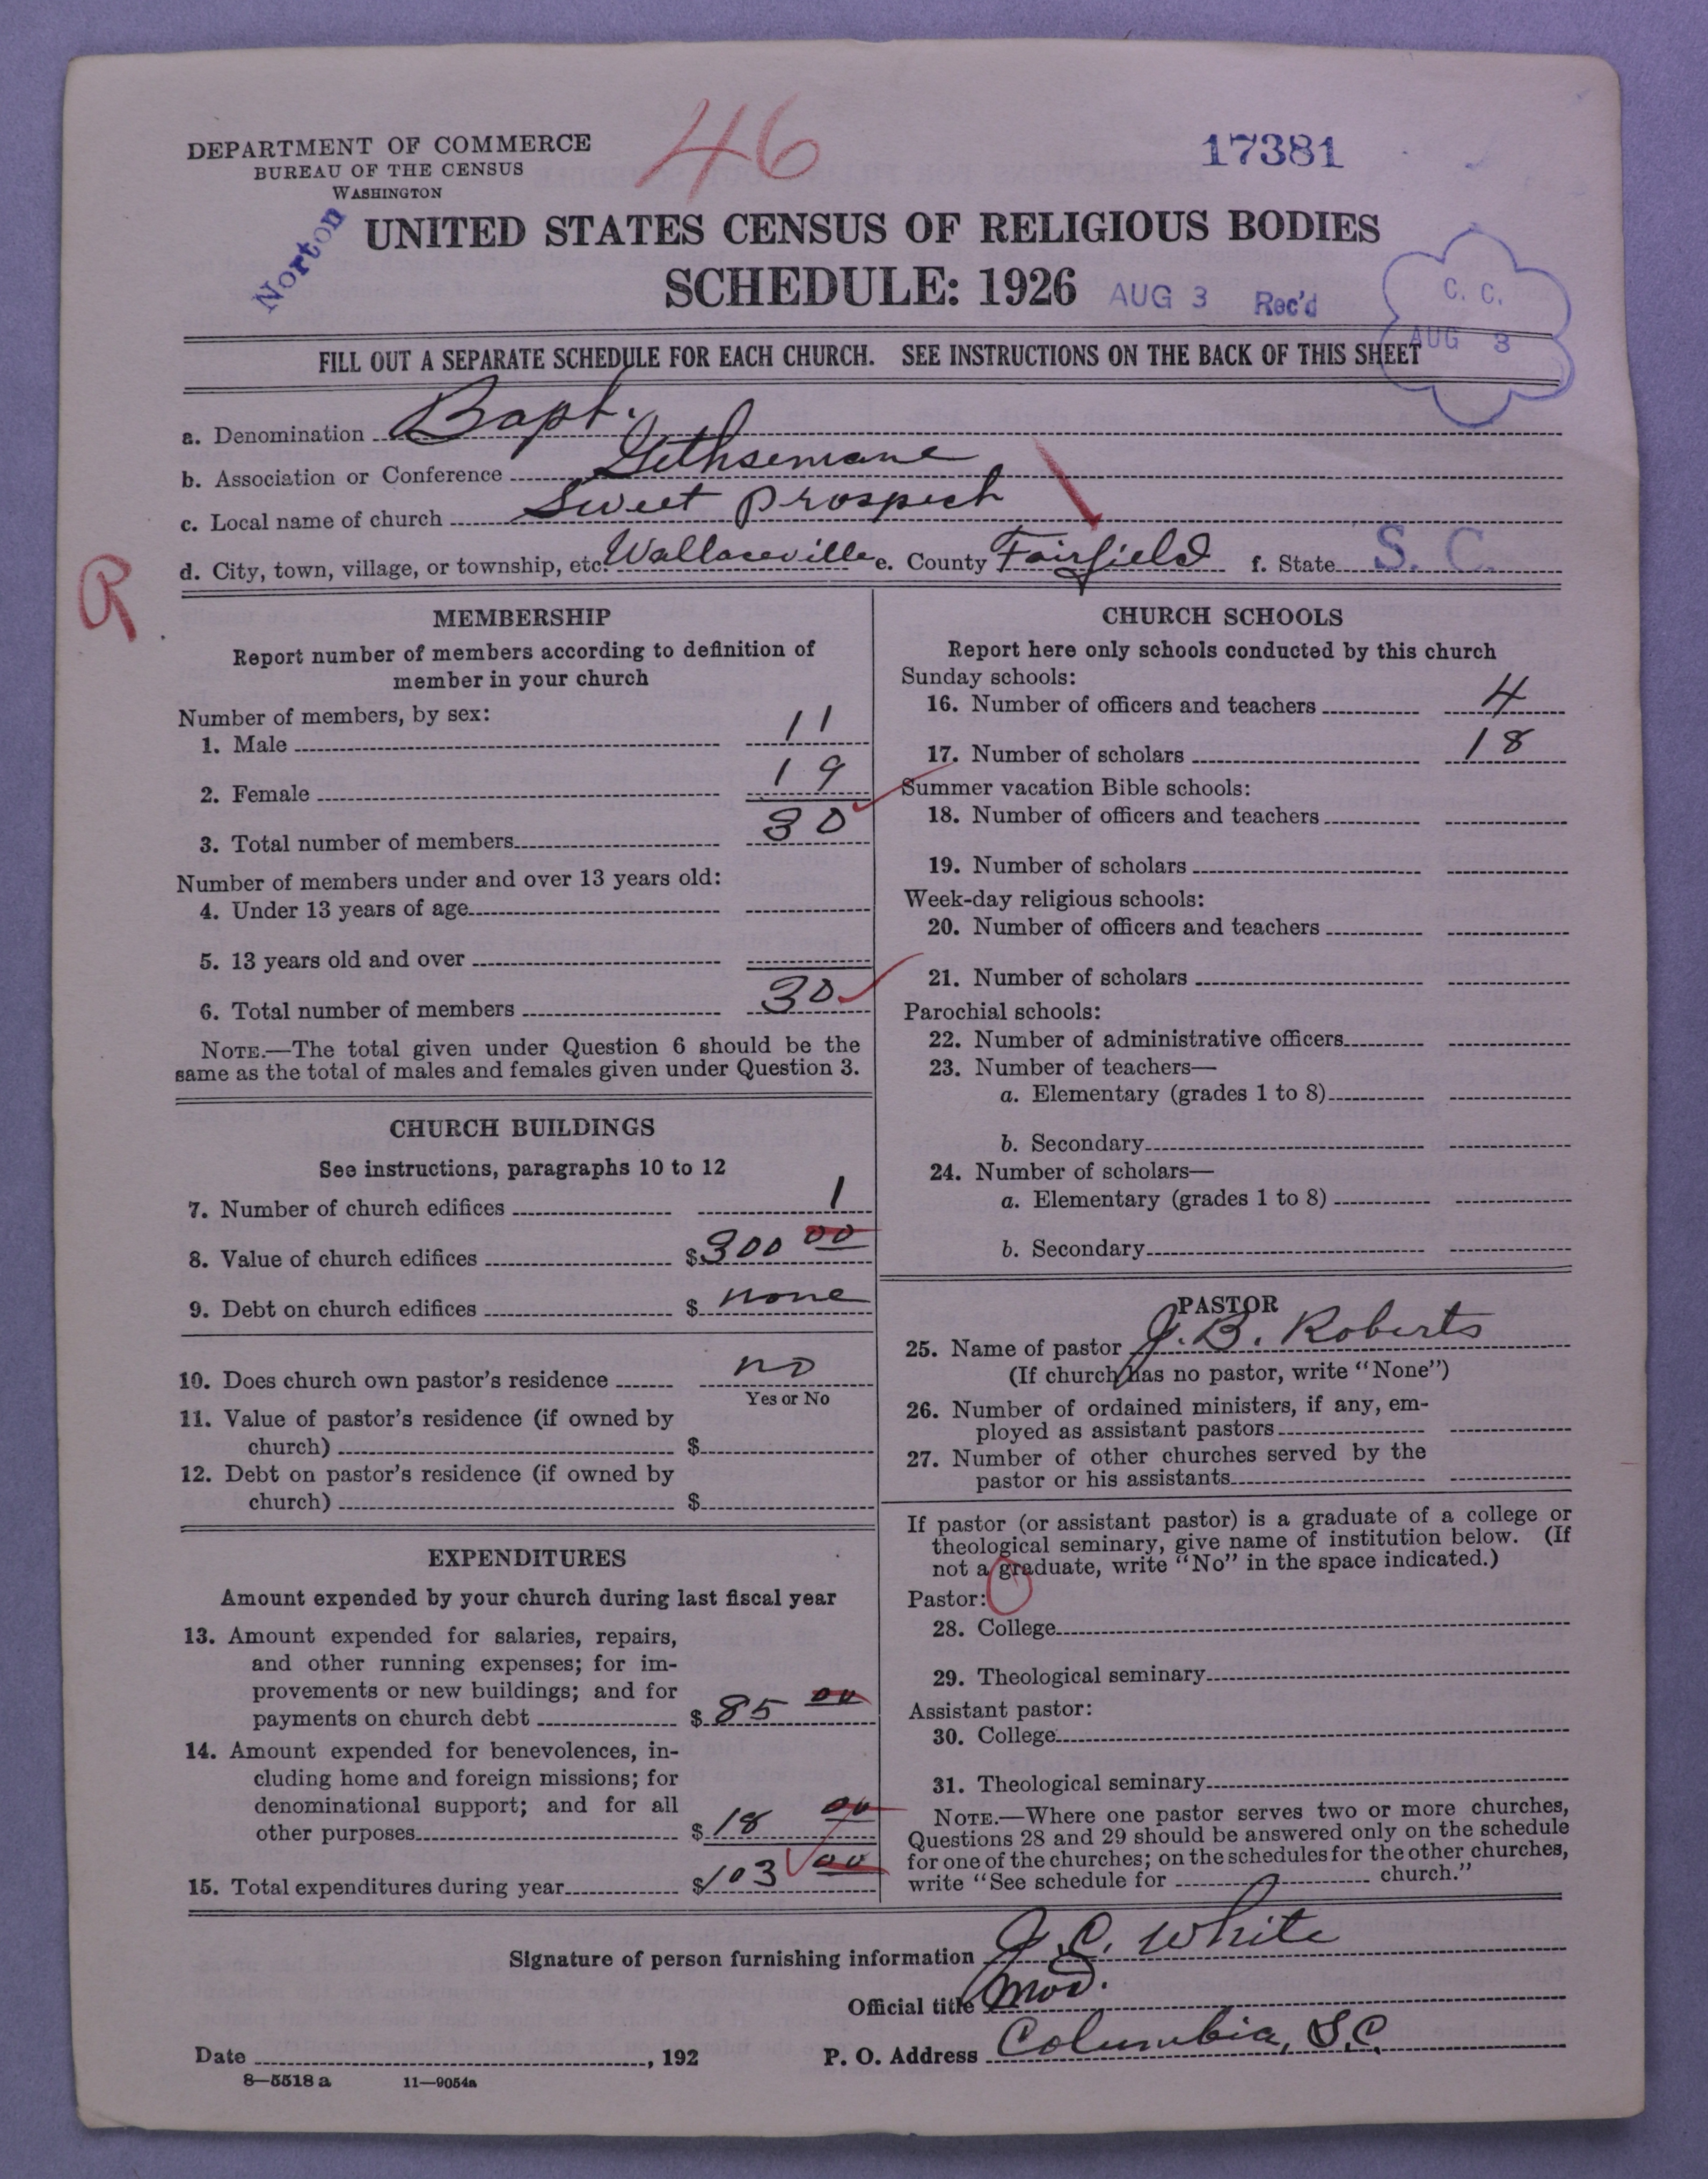 DEPARTMENT OF COMMERCE
BUREAU OF THE CENSUS
WASHINGTON
46
17381
Norton
UNITED STATES CENSUS OF RELIGIOUS BODIES
SCHEDULE: 1926
AUG 3 Rec'd
C. C.
AUG 3
FILL OUT A SEPARATE SCHEDULE FOR EACH CHURCH. SEE INSTRUCTIONS ON THE BACK OF THIS SHEET
a. Denomination Bapt.
b. Association or Conference Gethsemane
c. Local name of church Sweet Prospect
d. City, town, village, or township, etc. Wallaceville e. County Fairfield f. State S. C.
R
MEMBERSHIP
Report number of members according to definition of
member in your church
Number of members, by sex:
1. Male 11
2. Female 19
3. Total number of members 30
Number of members under and over 13 years old:
4. Under 13 years of age
5. 13 years old and over
6. Total number of members 30
NOTE.—The total given under Question 6 should be the
same as the total of males and females given under Question 3.
CHURCH BUILDINGS
See instructions, paragraphs 10 to 12
7. Number of church edifices 1
8. Value of church edifices $300 00
9. Debt on church edifices $ none
10. Does church own pastor's residence no
Yes or No
11. Value of pastor's residence (if owned by
church) $
12. Debt on pastor's residence (if owned by
church) $
EXPENDITURES
Amount expended by your church during last fiscal year
13. Amount expended for salaries, repairs,
and other running expenses; for im-
provements or new buildings; and for
payments on church debt $85 00
14. Amount expended for benevolences, in-
cluding home and foreign missions; for
denominational support; and for all
other purposes $18 00
15. Total expenditures during year $103 00
CHURCH SCHOOLS
Report here only schools conducted by this church
Sunday schools:
16. Number of officers and teachers 4
17. Number of scholars 18
Summer vacation Bible schools:
18. Number of officers and teachers
19. Number of scholars
Week-day religious schools:
20. Number of officers and teachers
21. Number of scholars
Parochial schools:
22. Number of administrative officers
23. Number of teachers—
a. Elementary (grades 1 to 8)
b. Secondary
24. Number of scholars—
a. Elementary (grades 1 to 8)
b. Secondary
PASTOR
25. Name of pastor J. B. Roberts
(If church has no pastor, write "None")
26. Number of ordained ministers, if any, em-
ployed as assistant pastors
27. Number of other churches served by the
pastor or his assistants
If pastor (or assistant pastor) is a graduate of a college or
theological seminary, give name of institution below. (If
not a graduate, write "No" in the space indicated.)
Pastor:
28. College
29. Theological seminary
Assistant pastor:
30. College
31. Theological seminary
NOTE.—Where one pastor serves two or more churches,
Questions 28 and 29 should be answered only on the schedule
for one of the churches; on the schedules for the other churches,
write "See schedule for church."
Signature of person furnishing information J. C. White
Official title Mod.
Date , 192 P. O. Address Columbia, S.C.
8—5518 a 11—9054a